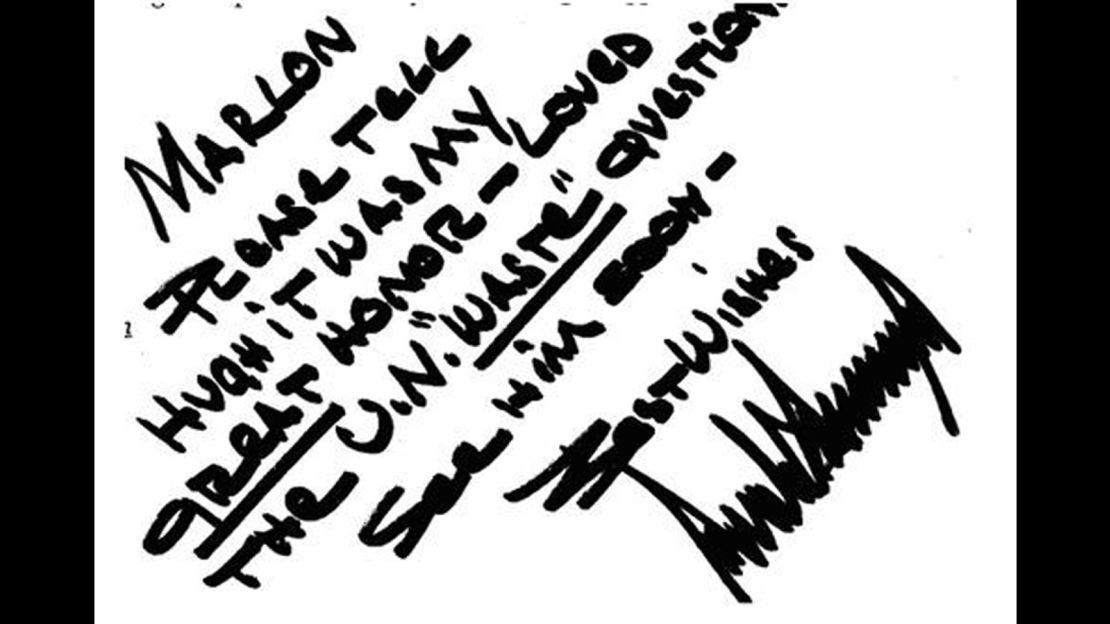 MARLON
PLEASE TELL
HUGH iT WAS MY
GREAT HONOR - LOVED
THE U.N. "WASTE" QUESTION
See Him SOON -
BEST WisHes